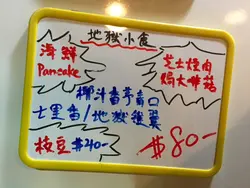 地獄小食
海鮮
Pancake
芝士煙肉
焗大啡菇
椰汁香芋青口
七里香/地獄雞翼
枝豆 $40-
$80-